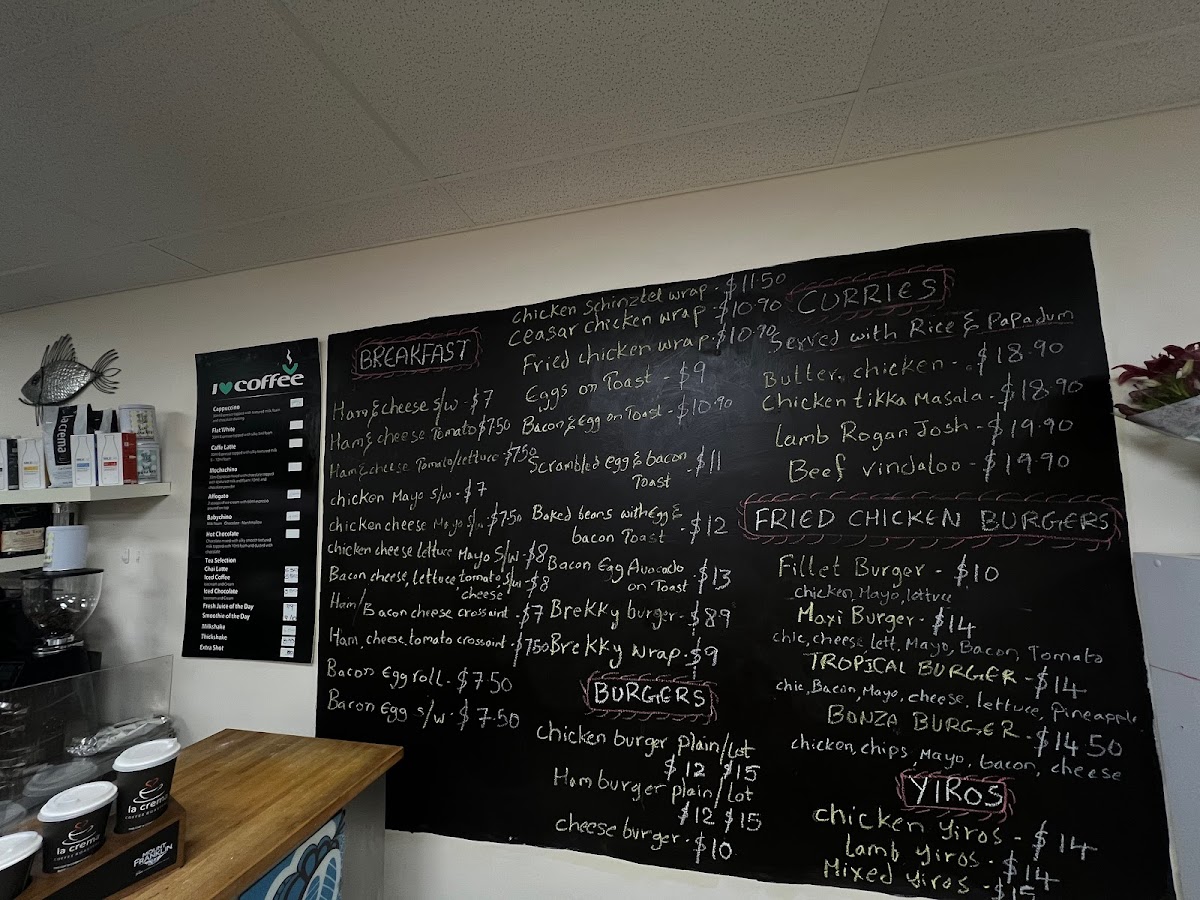 I ♥ coffee
Cappuccino
Flat White
Caffe Latte
Mochachino
Affogato
Babychino
Milk foam Chocolate Marshmallow
Hot Chocolate
Tea Selection
Chai Latte
Iced Coffee
Iced Chocolate
Fresh Juice of the Day
Smoothie of the Day
Milkshake
Thickshake
Extra Shot
BREAKFAST
Ham & cheese S/w - $7
Ham & cheese Tomato $7.50
Ham & cheese Tomato/lettuce - $7.50
chicken Mayo s/w - $7
chicken cheese Mayo s/w - $7.50
chicken cheese lettuce Mayo S/w - $8
Bacon cheese, lettuce, tomato, s/w - $8
cheese
Ham/Bacon cheese crossaint - $7
Ham, cheese, tomato crossoint - $7.50
Bacon Egg roll - $7.50
Bacon Egg s/w - $7.50
chicken Schinztel wrap - $11.50
ceasar chicken wrap - $10.90
Fried chicken wrap - $10.90
Eggs on Toast - $9
Bacon & Egg on Toast - $10.90
Scrambled egg & bacon Toast - $11
Baked beans with Egg &
bacon Toast - $12
Bacon Egg Avacado
on Toast - $13
Brekky burger - $8.9
Brekky wrap - $9
BURGERS
Chicken burger plain/lot
$12 $15
Hamburger plain/lot
$12 $15
cheese burger - $10
CURRIES
Served with Rice & Papadum
Butter chicken - $18.90
Chicken tikka Masala - $18.90
Lamb Rogan Josh - $19.90
Beef vindaloo - $19.90
FRIED CHICKEN BURGERS
Fillet Burger - $10
chicken, Mayo, lettuce
Maxi Burger - $14
chic, cheese, lett, Mayo, Bacon, Tomato
TROPICAL BURGER - $14
chic, Bacon, Mayo, cheese, lettuce, Pineapple
BONZA BURGER - $14.50
chicken, chips, Mayo, bacon, cheese
YIROS
chicken Yiros - $14
Lamb Yiros - $14
Mixed Yiros - $15
crema
la crema
COFFEE ROASTERS
la crema
COFFEE ROASTERS
la crema
MOUNT FRANKLIN